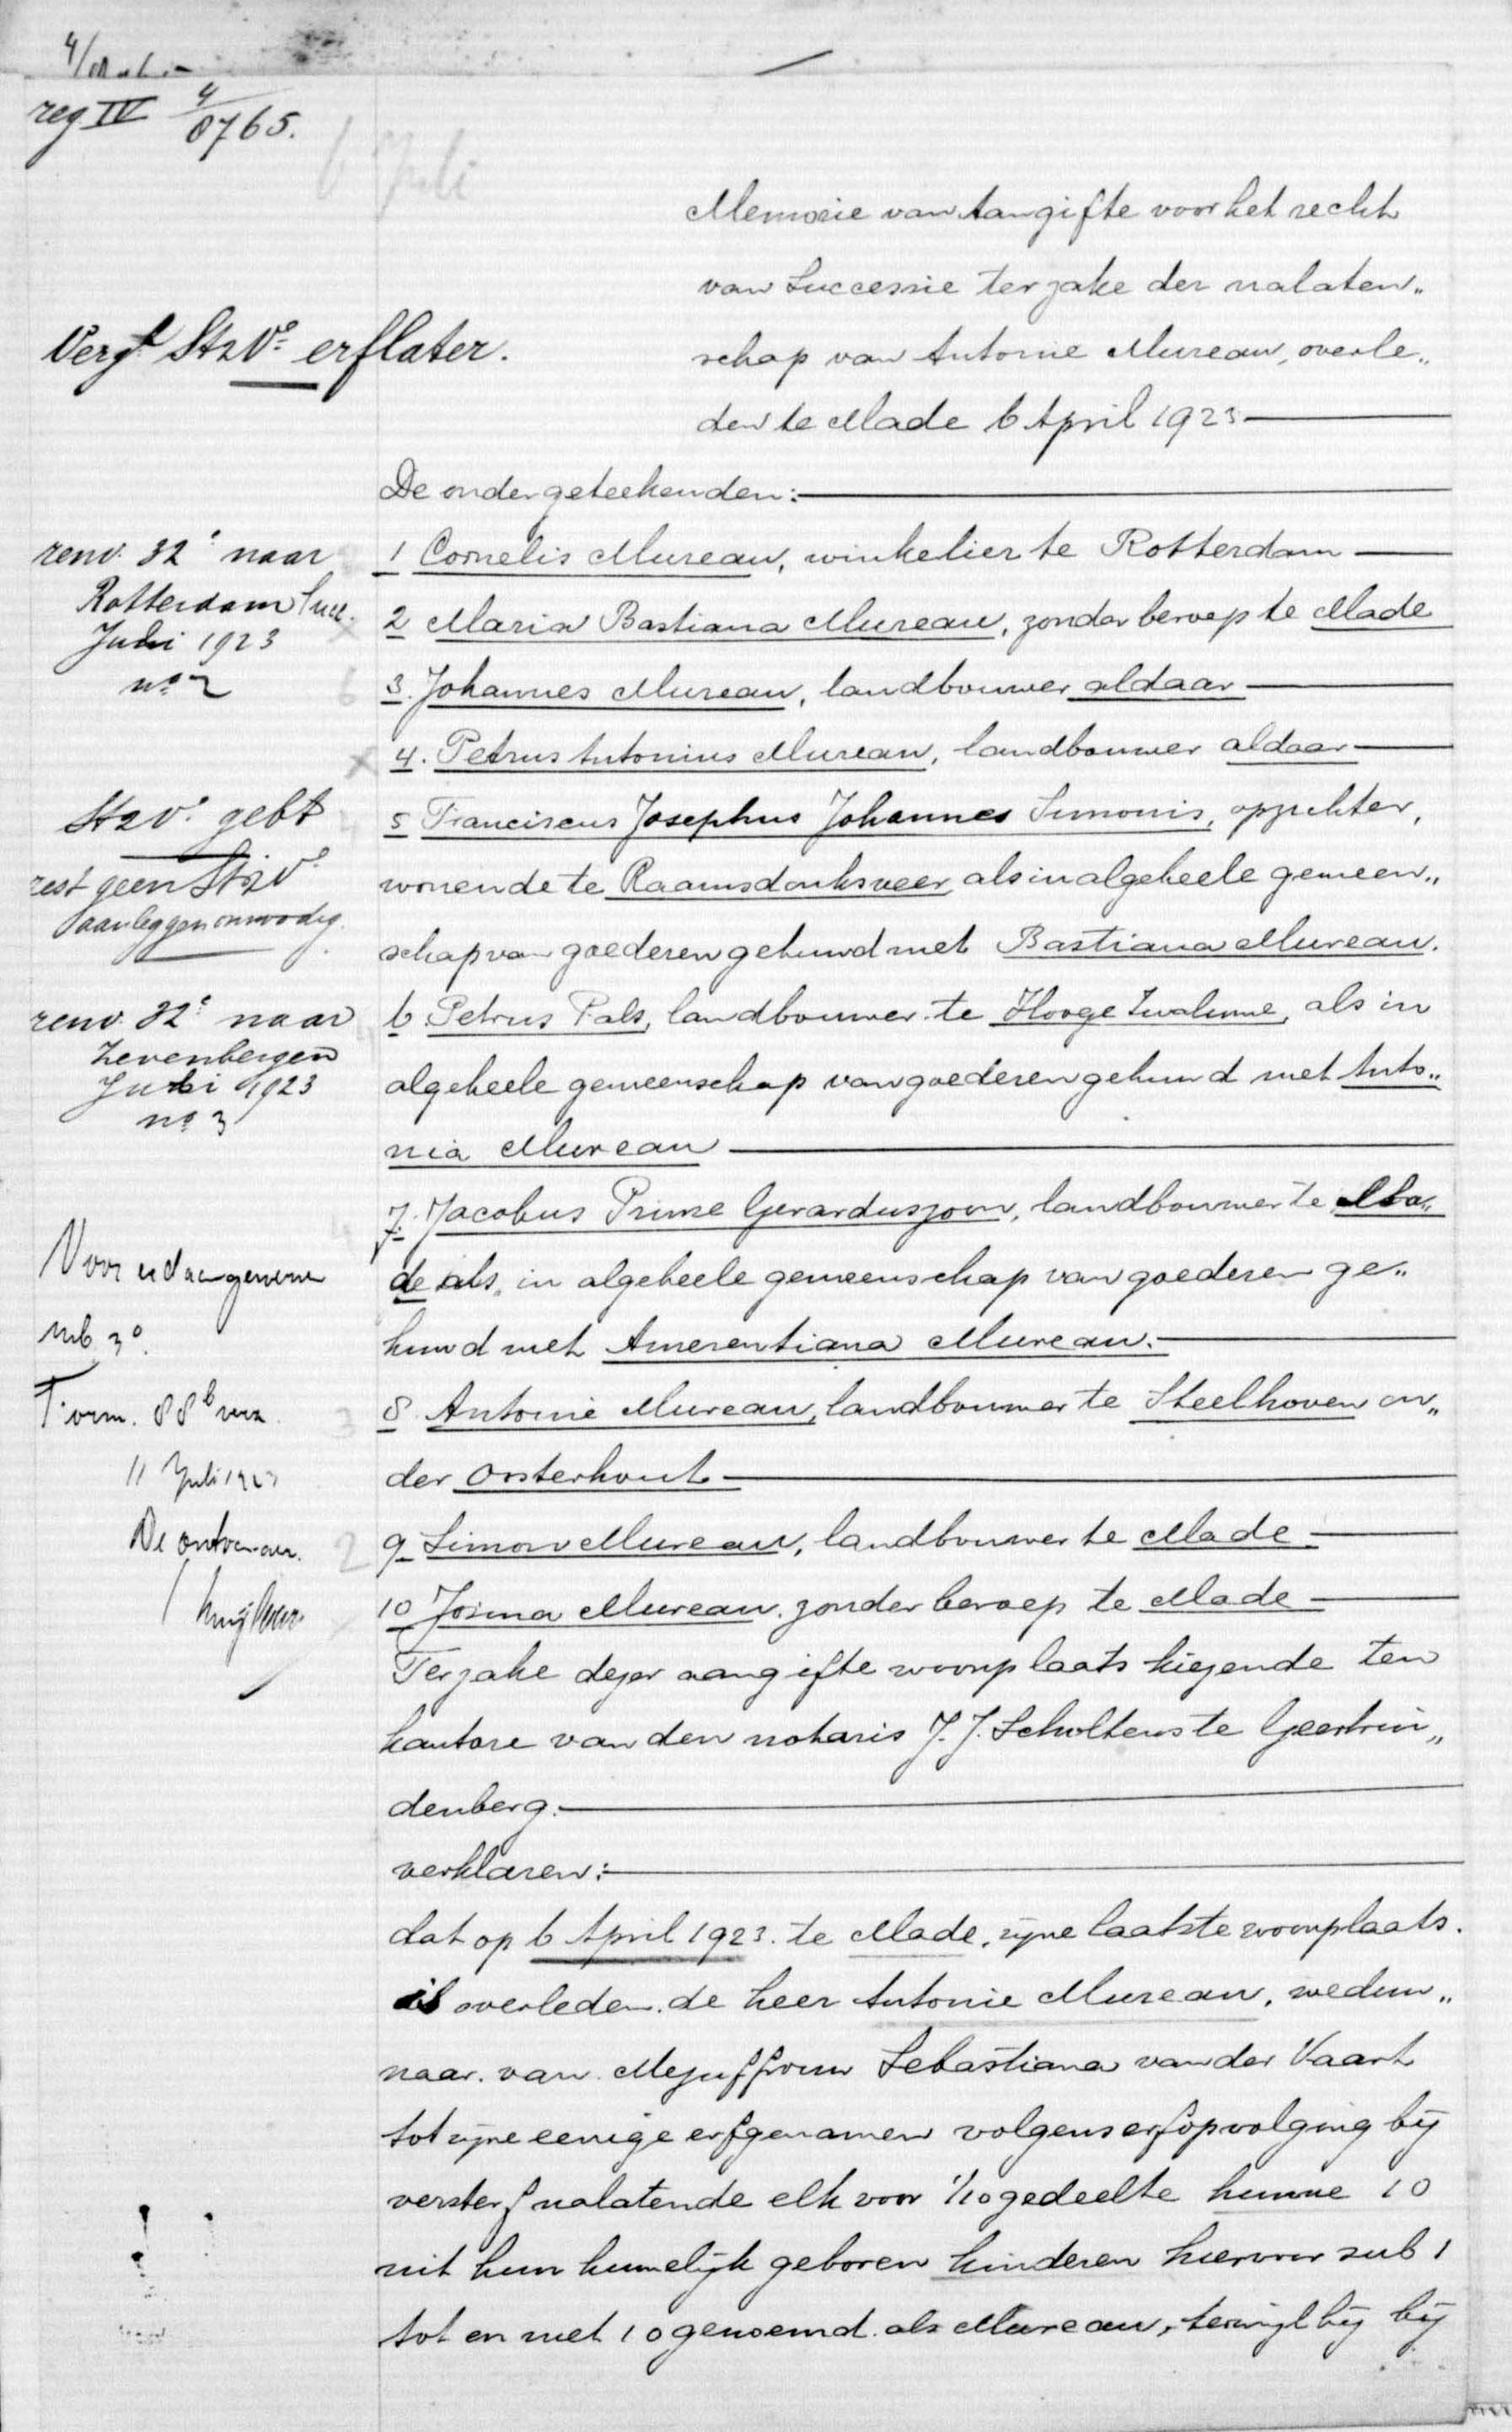 reg IV 4/8765.
6 Juli
Memorie van Aangifte voor het recht
van Successie ter zake der nalaten„
schap van Antonie Mureau, overle„
den te Made 6 April 1923
Verg. St2Vo erflater.
De ondergeteekenden:
1 Cornelis Mureau, winkelier te Rotterdam
2 Maria Bastiana Mureau, zonder beroep te Made
3. Johannes Mureau, landbouwer aldaar
4. Petrus Antonius Mureau, landbouwer aldaar
5 Franciscus Josephus Johannes Simonis, opzichter,
wonende te Raamsdonksveer als in algeheele gemeen„
schap van goederen gehuwd met Bastiana Mureau.
6 Petrus Pals, landbouwer te Hooge Zwaluwe, als in
algeheele gemeenschap van goederen gehuwd met Anto„
nia Mureau
7. Jacobus Prinse Gerarduszoon, landbouwer te Ma„
de als, in algeheele gemeenschap van goederen ge„
huwd met Amerentiana Mureau.
8. Antonie Mureau, landbouwer te Steelhoven on„
der Oosterhout
9 Simon Mureau, landbouwer te Made
10 Josina Mureau. zonder beroep te Made
Terzake dezer aangifte woonplaats kiezende ten
kantore van den notaris J. J. Scholtens te Geertrui„
denberg.
verklaren:
dat op 6 April 1923. te Made, zijne laatste woonplaats.
is overleden. de heer Antonie Mureau, weduw„
naar. van. Mejuffrouw Sebastiana van der Vaart
tot zijne eenige erfgenamen volgens erfopvolging bij
versterf nalatende elk voor 1/10 gedeelte hunne 10
uit hun huwelijk geboren kinderen hiervoor sub 1
tot en met 10 genoemd. als Mureau, terwijl hij bij
renv. 32e naar
Rotterdam Succ.
Juli 1923
no 2
St2Vo gebt
rest geen St2Vo
aanleggen onnodig.
renv. 32e naar
Zevenbergen
Juli 1923
no 3
Voor
sub 3o.
Form. 88b verz.
11 Juli 1923
De ontvanger.